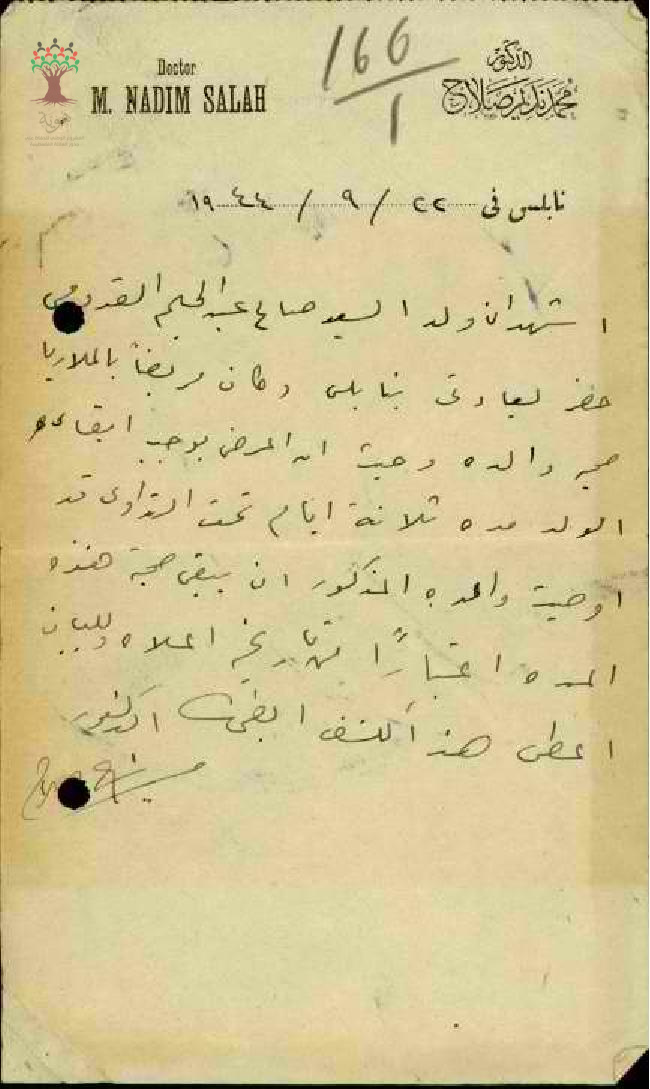 Doctor
M. NADIM SALAH
166
1
الدكتور
محمد نديم صلاح
هوية
نابلس في ٢٢ / ٩ / ١٩٤٤
اشهد ان ولد السيد صالح عبد الحليم القدومي
حضر لعيادتي بنابلس وكان مريضاً بالملاريا
صحبة والده وحيث ان المرض يوجب ابقاء
الولد مده ثلاثة ايام تحت التداوي قد
اوصيت والده المذكور ان يبقى صحبة هذه
المده اعتباراً من تاريخه اعلاه وللبيان
اعطى هذا الكشف الطبي الدكتور